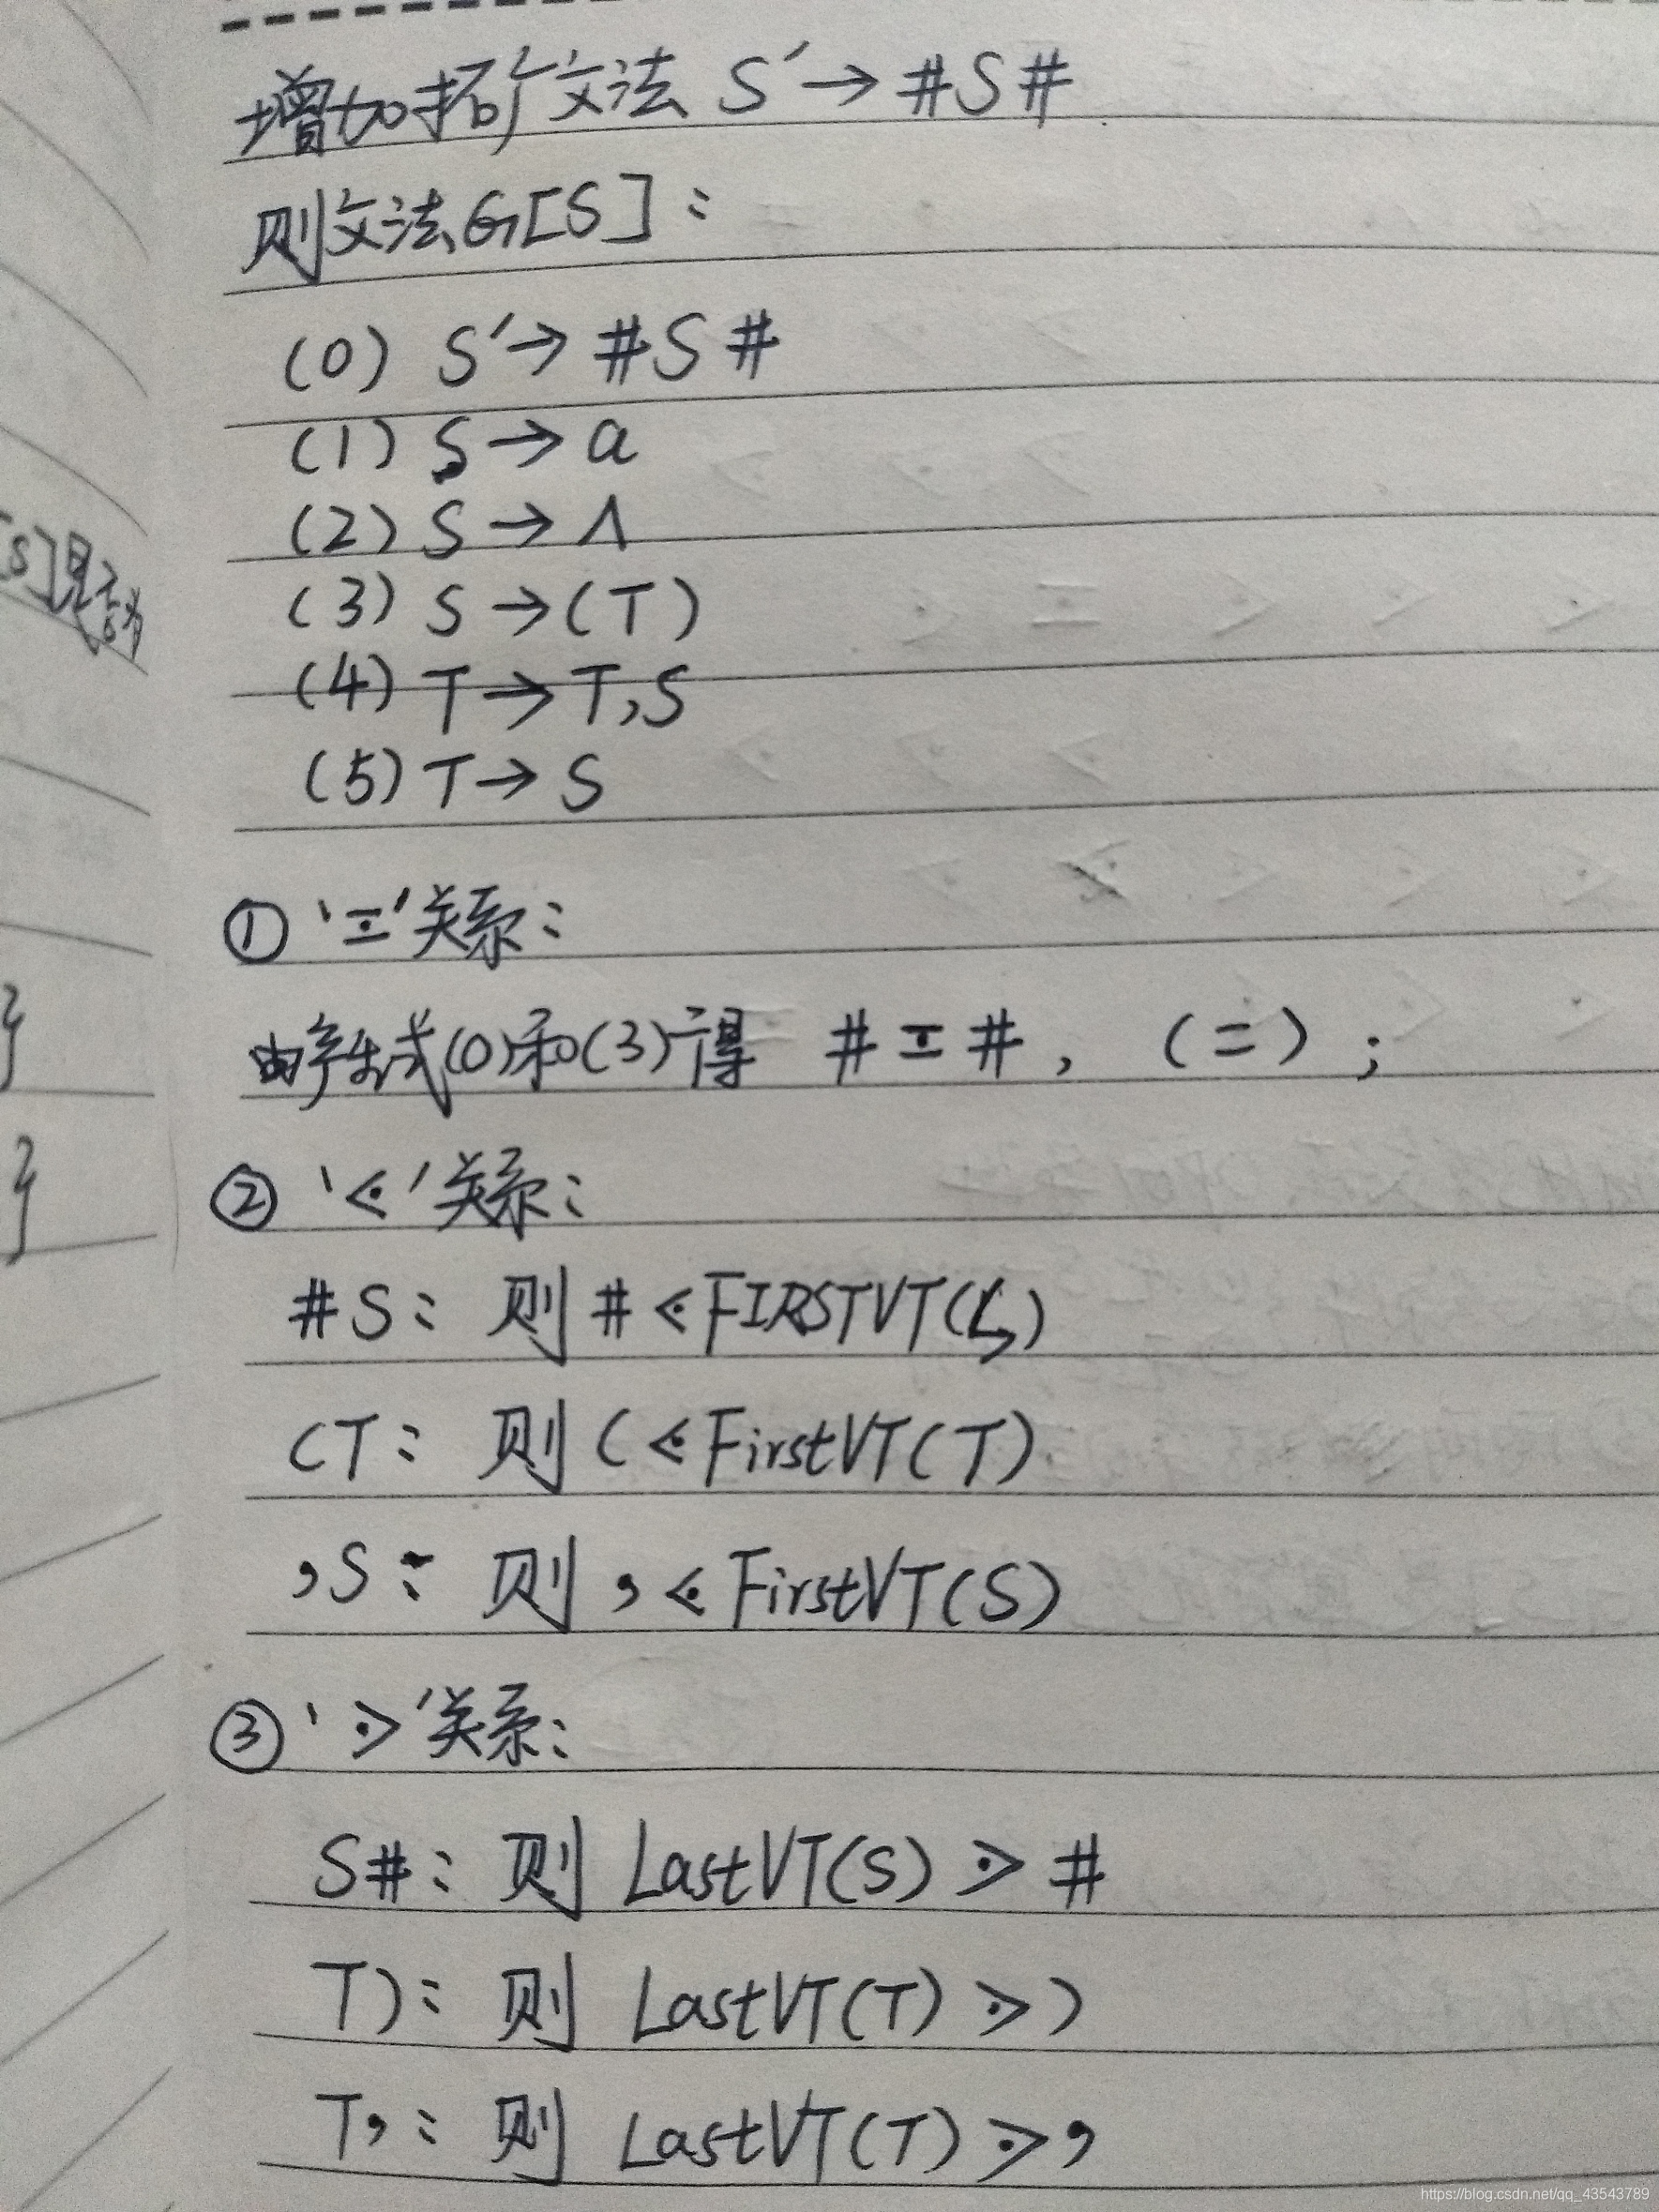 增加拓广文法 S′→#S#
则文法G[S]：
(0) S′→#S#
(1) S→a
(2) S→Λ
(3) S→(T)
(4) T→T,S
(5) T→S
[S]是否为
① '≐'关系：
由产生式(0)和(3)得 #≐#, (≐);
② '⋖'关系：
#S： 则#⋖FIRSTVT(S)
(T： 则(⋖FirstVT(T)
,S： 则,⋖FirstVT(S)
③ '⋗'关系：
S#： 则 LastVT(S)⋗#
T)： 则 LastVT(T)⋗)
T,： 则 LastVT(T)⋗,
https://blog.csdn.net/qq_43543789